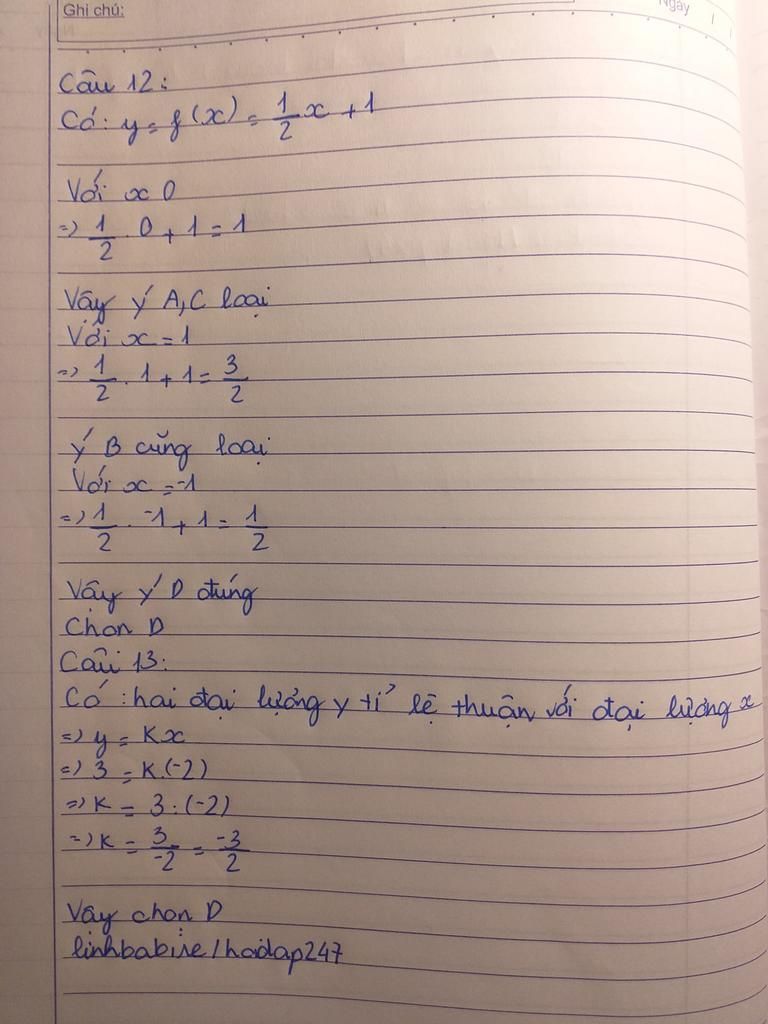 Ghi chú:
Ngày
Câu 12:
Có: y = f(x) = 1/2 x + 1
Với x 0
=> 1/2 . 0 + 1 = 1
Vậy ý A, C loại
Với x = 1
=> 1/2 . 1 + 1 = 3/2
ý B cũng loại
Với x = -1
=> 1/2 . -1 + 1 = 1/2
Vậy ý D đúng
Chọn D
Câu 13:
Có: hai đại lượng y tỉ lệ thuận với đại lượng x
=> y = Kx
=> 3 = K.(-2)
=> K = 3 : (-2)
=> K = 3/-2 = -3/2
Vậy chọn D
linhbabie/hoidap247